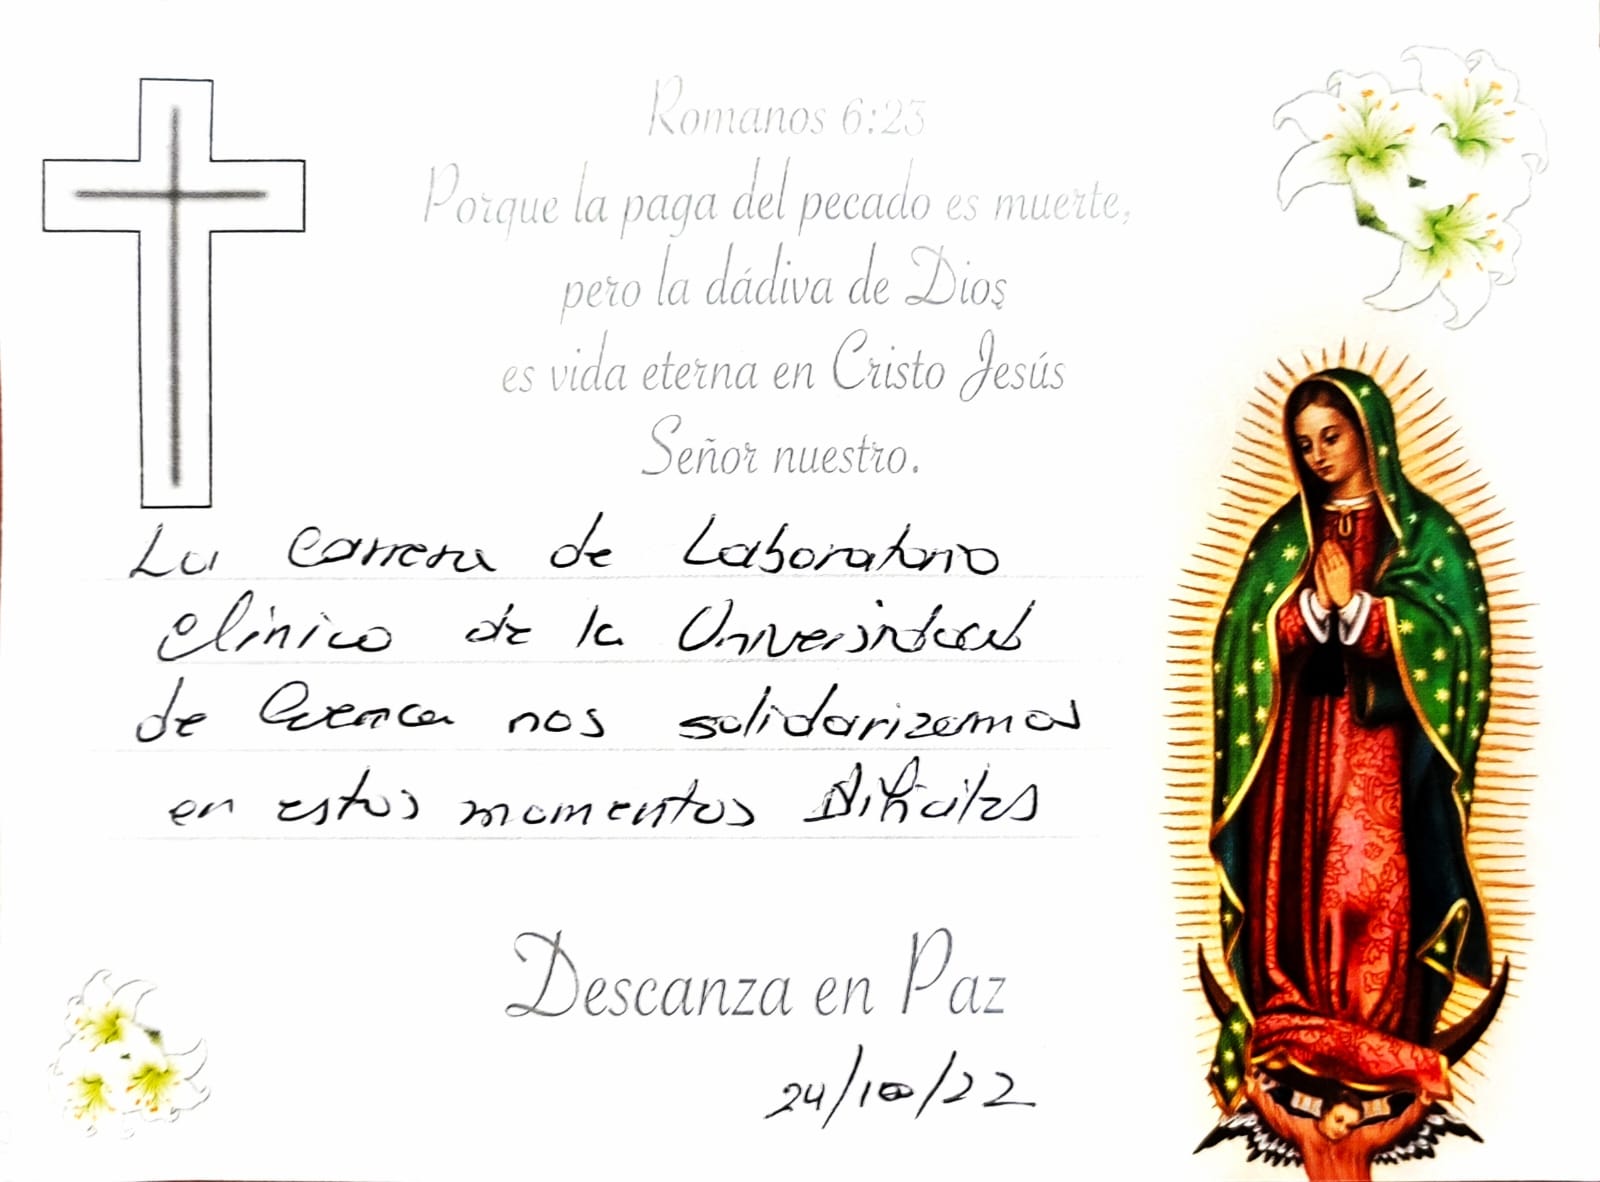 Romanos 6:23
Porque la paga del pecado es muerte,
pero la dádiva de Dios
es vida eterna en Cristo Jesús
Señor nuestro.
La Carrera de Laboratorio
Clínico de la Universidad
de Cuenca nos solidarizamos
en estos momentos Difíciles
Descanza en Paz
24/10/22